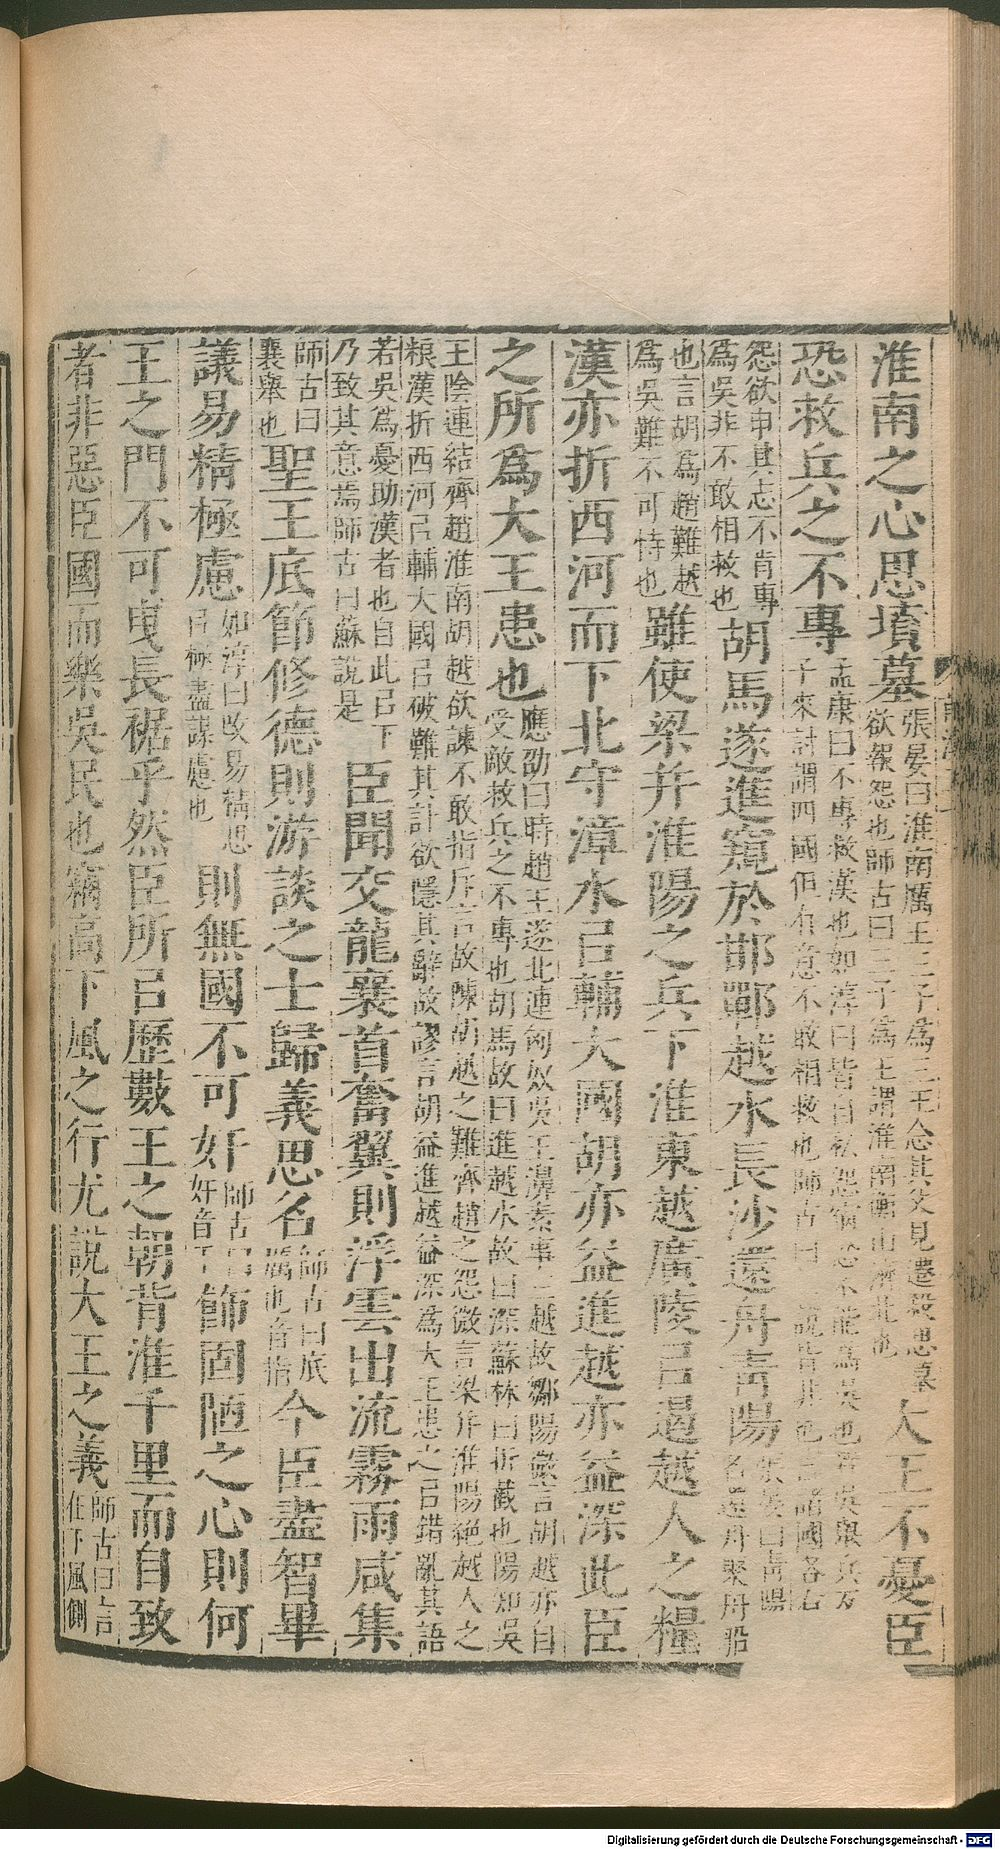 淮南之心思墳墓張晏曰淮南厲王三子為三王念其父見遷殺思墓欲報怨也師古曰三子為王謂淮南衡山濟北也大王不憂臣
恐救兵之不專孟康曰不專救漢也如淳曰皆自私怨宿忿不能為吳也若吳舉兵反天子來討謂四國但有意不敢相救也師古曰二說皆非也言諸國各有
怨欲申其志不肯專為吳非不敢相救也胡馬遂進窺於邯鄲越水長沙還舟青陽張晏曰青陽名還舟聚舟船
也言胡為趙難越為吳難不可恃也雖使梁并淮陽之兵下淮東越廣陵㠯遏越人之糧
漢亦折西河而下北守漳水㠯輔大國胡亦益進越亦益深此臣
之所為大王患也應劭曰時趙王遂北連匈奴吳王濞素事三越故鄒陽微言胡越亦自受敵救兵之不專也胡馬故曰進越水故曰深蘇林曰折截也陽知吳
王陰連結齊趙淮南胡越欲諫不敢指斥言故陳胡越之難齊趙之怨微言梁并淮陽絕越人之粮漢折西河㠯輔大國㠯破難其計欲隱其辭故謬言胡益進越益深為大王患之㠯錯亂其語
若吳為憂助漢者也自此㠯下乃致其意焉師古曰蘇說是臣聞交龍襄首奮翼則浮雲出流霧雨咸集
師古曰襄舉也聖王底節修德則游談之士歸義思名師古曰底厲也音指今臣盡智畢
議易精極慮如淳曰改易精思㠯極盡謀慮也則無國不可奸師古曰奸音干飾固陋之心則何
王之門不可曳長裾乎然臣所㠯歷數王之朝背淮千里而自致
者非惡臣國而樂吳民也竊高下風之行尤說大王之義師古曰言在下風側
Digitalisierung gefördert durch die Deutsche Forschungsgemeinschaft - DFG